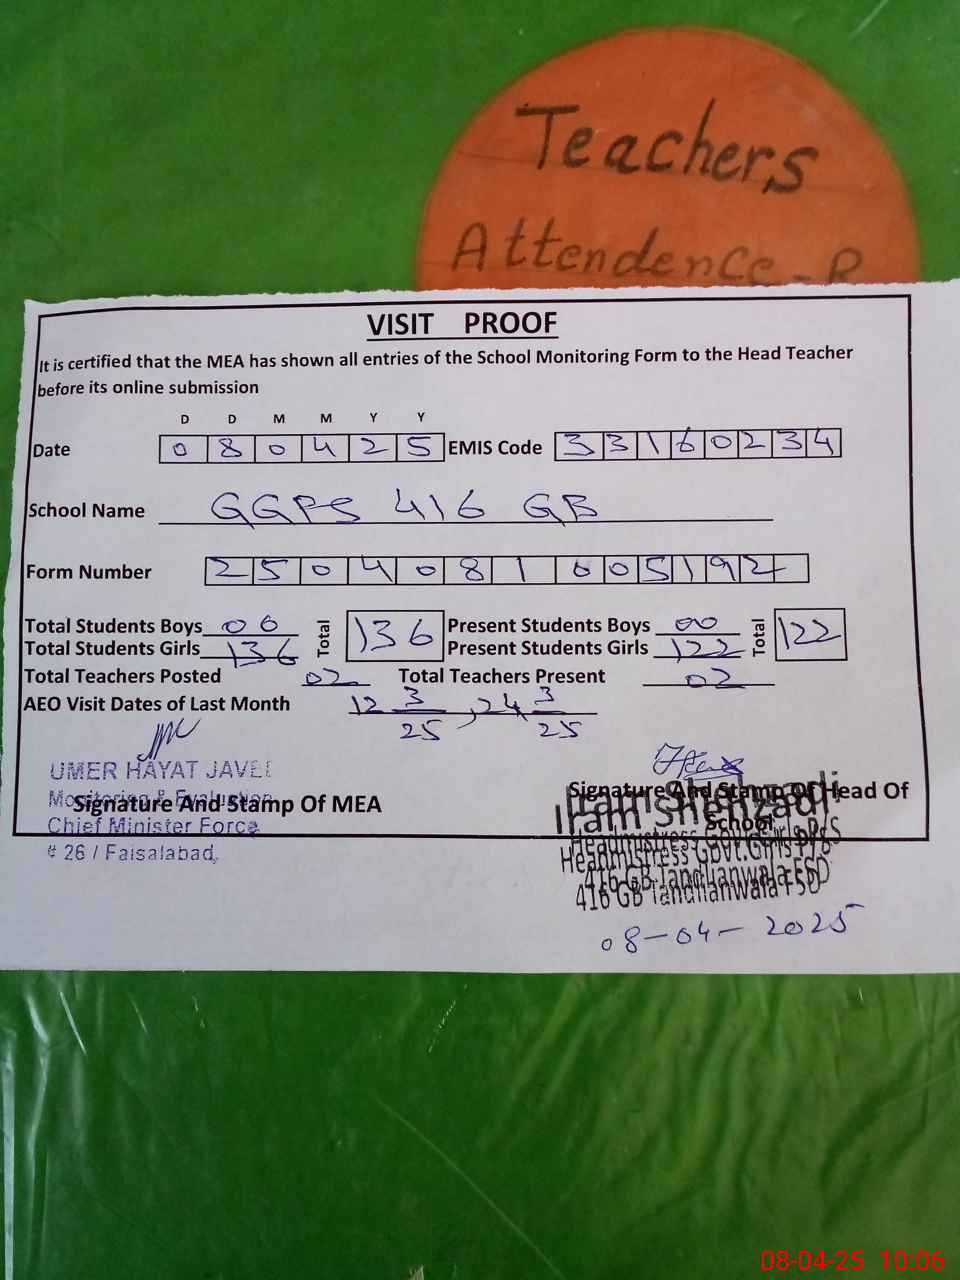 Teachers
Attendence-R
VISIT PROOF
It is certified that the MEA has shown all entries of the School Monitoring Form to the Head Teacher
before its online submission
D D M M Y Y
Date 0 8 0 4 2 5 EMIS Code 3 3 1 6 0 2 3 4
School Name GGPS 416 GB
Form Number 2 5 0 4 0 8 1 0 0 5 1 9 2
Total Students Boys 00 Total 136 Present Students Boys 00 Total 122
Total Students Girls 136 Present Students Girls 122
Total Teachers Posted 02 Total Teachers Present 02
AEO Visit Dates of Last Month 12 3/25, 24 3/25
UMER HAYAT JAVED
Monitoring & Evaluation
Signature And Stamp Of MEA
Chief Minister Force
# 26 / Faisalabad,
Signature And Stamp Of Head Of
School
Iram Shehzadi
Headmistress Govt.Girls P/S
416 GB Tandlianwala FSD
08-04-2025
08-04-25 10:06